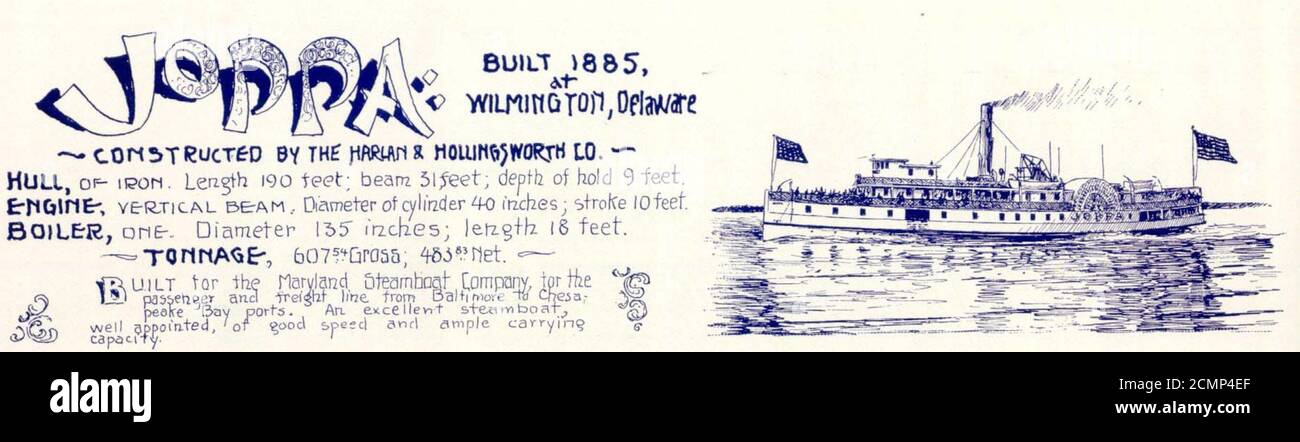 JOPPA:
BUILT 1885,
at
WILMINGTON, Delaware
~ CONSTRUCTED BY THE HARLAN & HOLLINGSWORTH CO. ~
HULL, OF IRON. Length 190 feet; beam 31 feet; depth of hold 9 feet.
ENGINE, VERTICAL BEAM. Diameter of cylinder 40 inches; stroke 10 feet.
BOILER, ONE. Diameter 135 inches; length 18 feet.
TONNAGE, 607 54 Gross; 483 83 Net.
BUILT for the Maryland Steamboat Company, for the
passenger and freight line from Baltimore to Chesa-
peake Bay ports. An excellent steamboat,
well appointed, of good speed and ample carrying
capacity.
JOPPA
alamy
Image ID: 2CMP4EF
www.alamy.com